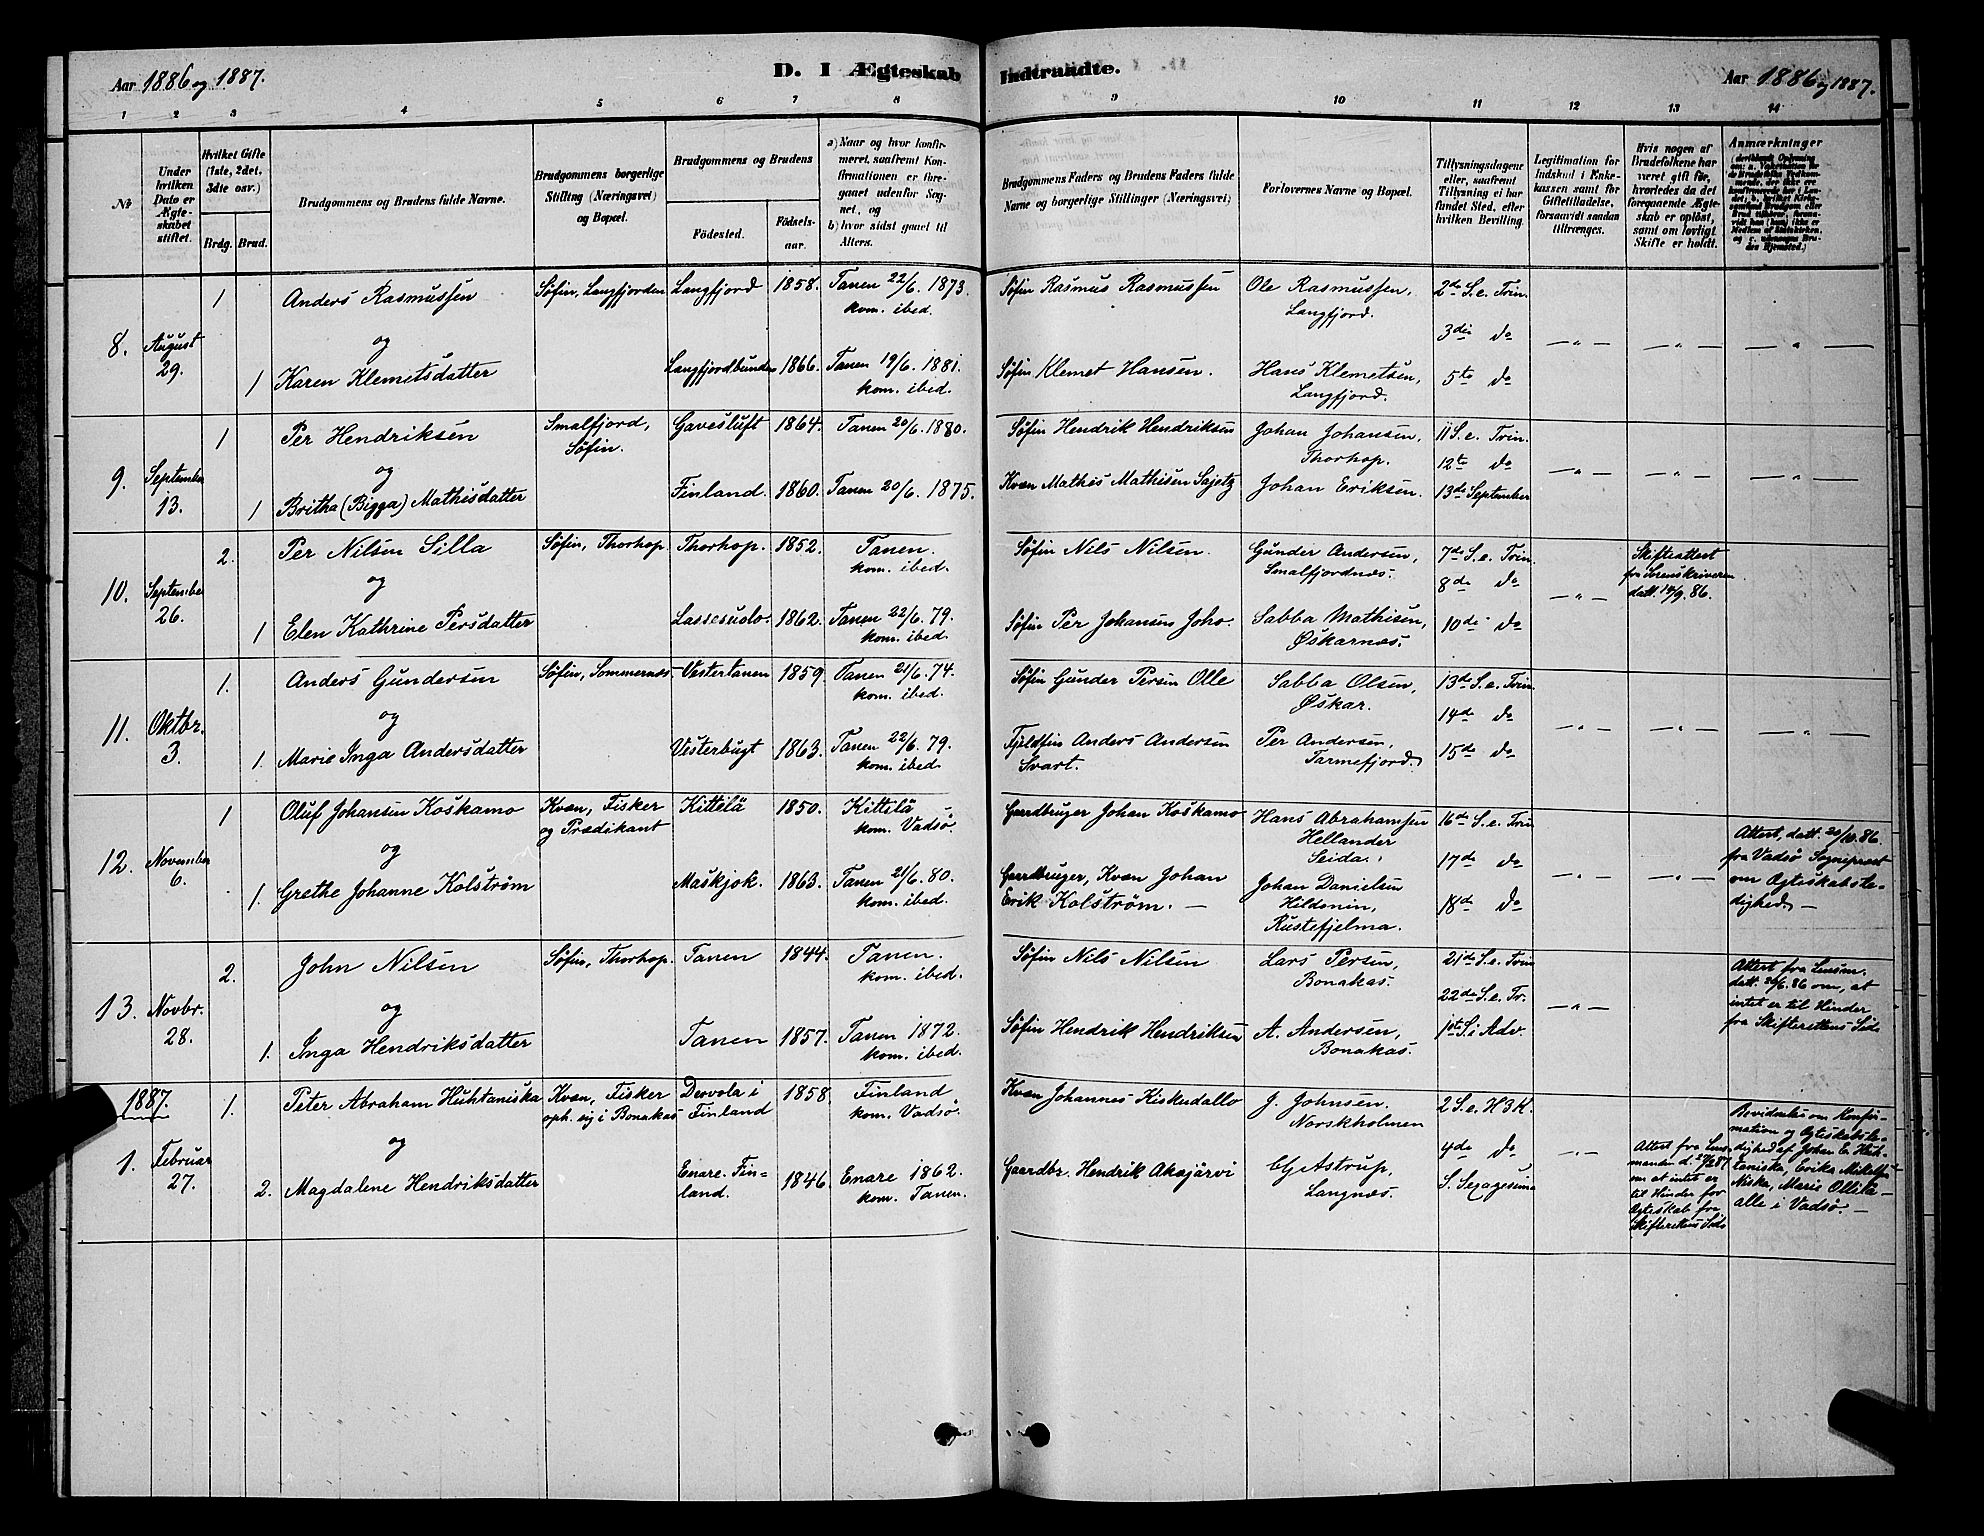 Aar 1886 og 1887.
D. I Ægteskab Indtraadte.
Aar 1886 og 1887.
1 2 3 4 5 6 7 8 9 10 11 12 13 14
No
Under hvilken Dato er Ægteskabet stiftet.
Hvilket Gifte (1ste, 2det, 3die osv.)
Brdg. Brud.
Brudgommens og Brudens fulde Navne.
Brudgommens borgerlige Stilling (Næringsvei) og Bopæl.
Brudgommens og Brudens
Fødested.
Fødselsaar.
a) Naar og hvor konfirmeret, saafremt Konfirmationen er foregaaet udenfor Sognet, og
b) hvor sidst gaaet til Alters.
Brudgommens Faders og Brudens Faders fulde Navne og borgerlige Stillinger (Næringsvei)
Forlovernes Navne og Bopæl.
Tillysningsdagene eller, saafremt Tillysning ei har fundet Sted, efter hvilken Bevilling.
Legitimation for Indskud i Enkekassen samt for Giftetilladelse, forsaavidt saadan tiltrænges.
Hvis nogen af Brudefolkene har været gift før, hvorledes da det foregaaende Ægteskab er opløst, samt om lovligt Skifte er holdt.
Anmærkninger
8. August 29.
1 Anders Rasmussen Søfin, Langfjorden Langfjord 1858. Tanen 22/6. 1873. kom. ibed. Søfin Rasmus Rasmussen Ole Rasmussen, Langfjord. 2de S. e. Trin.
og 3die do
1 Karen Klemitsdatter Langfjordbunden 1866. Tanen 19/6. 1881. kom. ibed. Søfin Klemet Hansen. Hans Klemetsen, Langfjord. 5te do
9. September 13.
1 Per Hendriksen Smalfjord, Søfin. Gavesluft 1864. Tanen 20/6. 1880. Søfin Hendrik Hendriksen Johan Johansen, Thorhop. 11 S. e. Trin.
og 12te do
1 Britha (Bigga) Mathisdatter Finland. 1860. Tanen 20/6. 1875. Kvæn Mathis Mathisen Sajetz Johan Eriksen. 13de September
10. September 26.
2. Per Nilsen Silla Søfin, Thorhop Thorhop. 1852. Tanen. kom. ibed. Søfin Nils Nilsen. Gunder Andersen, Smalfjordnæs. 7de S. e. Trin. Skifteattest fra Sorenskriveren datt. 19/9. 86.
og 8de do
1 Elen Kathrine Persdatter Lassesudo. 1862. Tanen 22/6. 79. kom. ibed. Søfin Per Johansen Joho. Sabba Mathisen, Øskarnæs. 10de do
11. Oktbr. 3.
1. Anders Gundersen Søfin, Sommernæs Vestertanen 1859. Tanen 21/6. 74. kom. ibed. Søfin Gunder Persen Olle Sabba Olsen, Øskar. 13de S. e. Trin.
og 14de do
1. Marie Inga Andersdatter Vesterbugt 1863. Tanen 22/6. 79. kom. ibed. Fjeldfin Anders Andersen Svart. Per Andersen, Tarmefjord. 15de do
12. November 6.
1 Oluf Johansen Koskamo Kvæn, Fisker og Prædikant Kittelä 1850. Kittilä kom. Vadsø. Gaardbruger Johan Koskamo Hans Abrahamsen Hellander Seida. 16de S. e. Trin Attest, datt. 20/10. 86. fra Vadsø Sognepræst om Ægteskabsledighed. —
og 17de do
1. Grethe Johanne Kolström Maskjok. 1863. Tanen 21/6. 80. kom. ibed. Gaardbruger, Kvæn Johan Erik Kolström. — Johan Danielsen Hildonin, Rustefjelma. 18de do
13. Novbr. 28.
2. John Nilsen Søfin, Thorhop. Tanen 1844. Tanen. kom. ibed. Søfin Nils Nilsen Lars Persen, Bonakas. 21de S. e. Trin Attest fra Lensm. datt. 26/6. 86 om, at intet er til Hinder fra Skifterettens Side
og 22de S. e. Tr.
1. Inga Hendriksdatter Tanen 1857. Tanen 1872. kom. ibed. Søfin Hendrik Hendriksen A. Andersen, Bonakas. 1ste S. i Adv.
1887.
1. Februar 27.
1. Peter Abraham Huhtaniska Kvæn, Fisker oph. sig i Bonakas Dervola i Finland 1858. Finland kom. Vadsø. Kvæn Johannes Kiskudallo J. Johnsen. Norskholmen 2 S. e. H3K. Bevidnelse om Konfirmation og Ægteskabsledighed af Johan E. Huhtaniska, Erika Mikelsen Niska, Marie Ollila — alle i Vadsø. —
og 4de do
2. Magdalene Hendriksdatter Enare. Finland. 1846. Enare 1862. kom. Tanen. Gaardbr. Hendrik Akajärvi Astrup, Langnæs. S. Sexagesima Attest fra Lensmanden d. 27/2 87 om at intet er til Hinder for Ægteskab fra Skifterettens Side